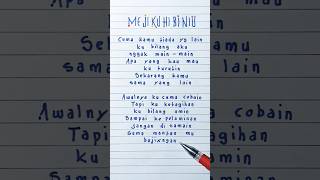 MEJIKUHIBINIU
Cuma kamu tiada yg lain
ku bilang aku
nggak main-main
Apa yang kau mau
ku turutin
Sekarang kamu
sama yang lain
Awalnya ku cuma cobain
Tapi ku ketagihan
ku bilang amin
Sampai ke pelaminan
jangan di samain
Sama mantan mu
bajingan